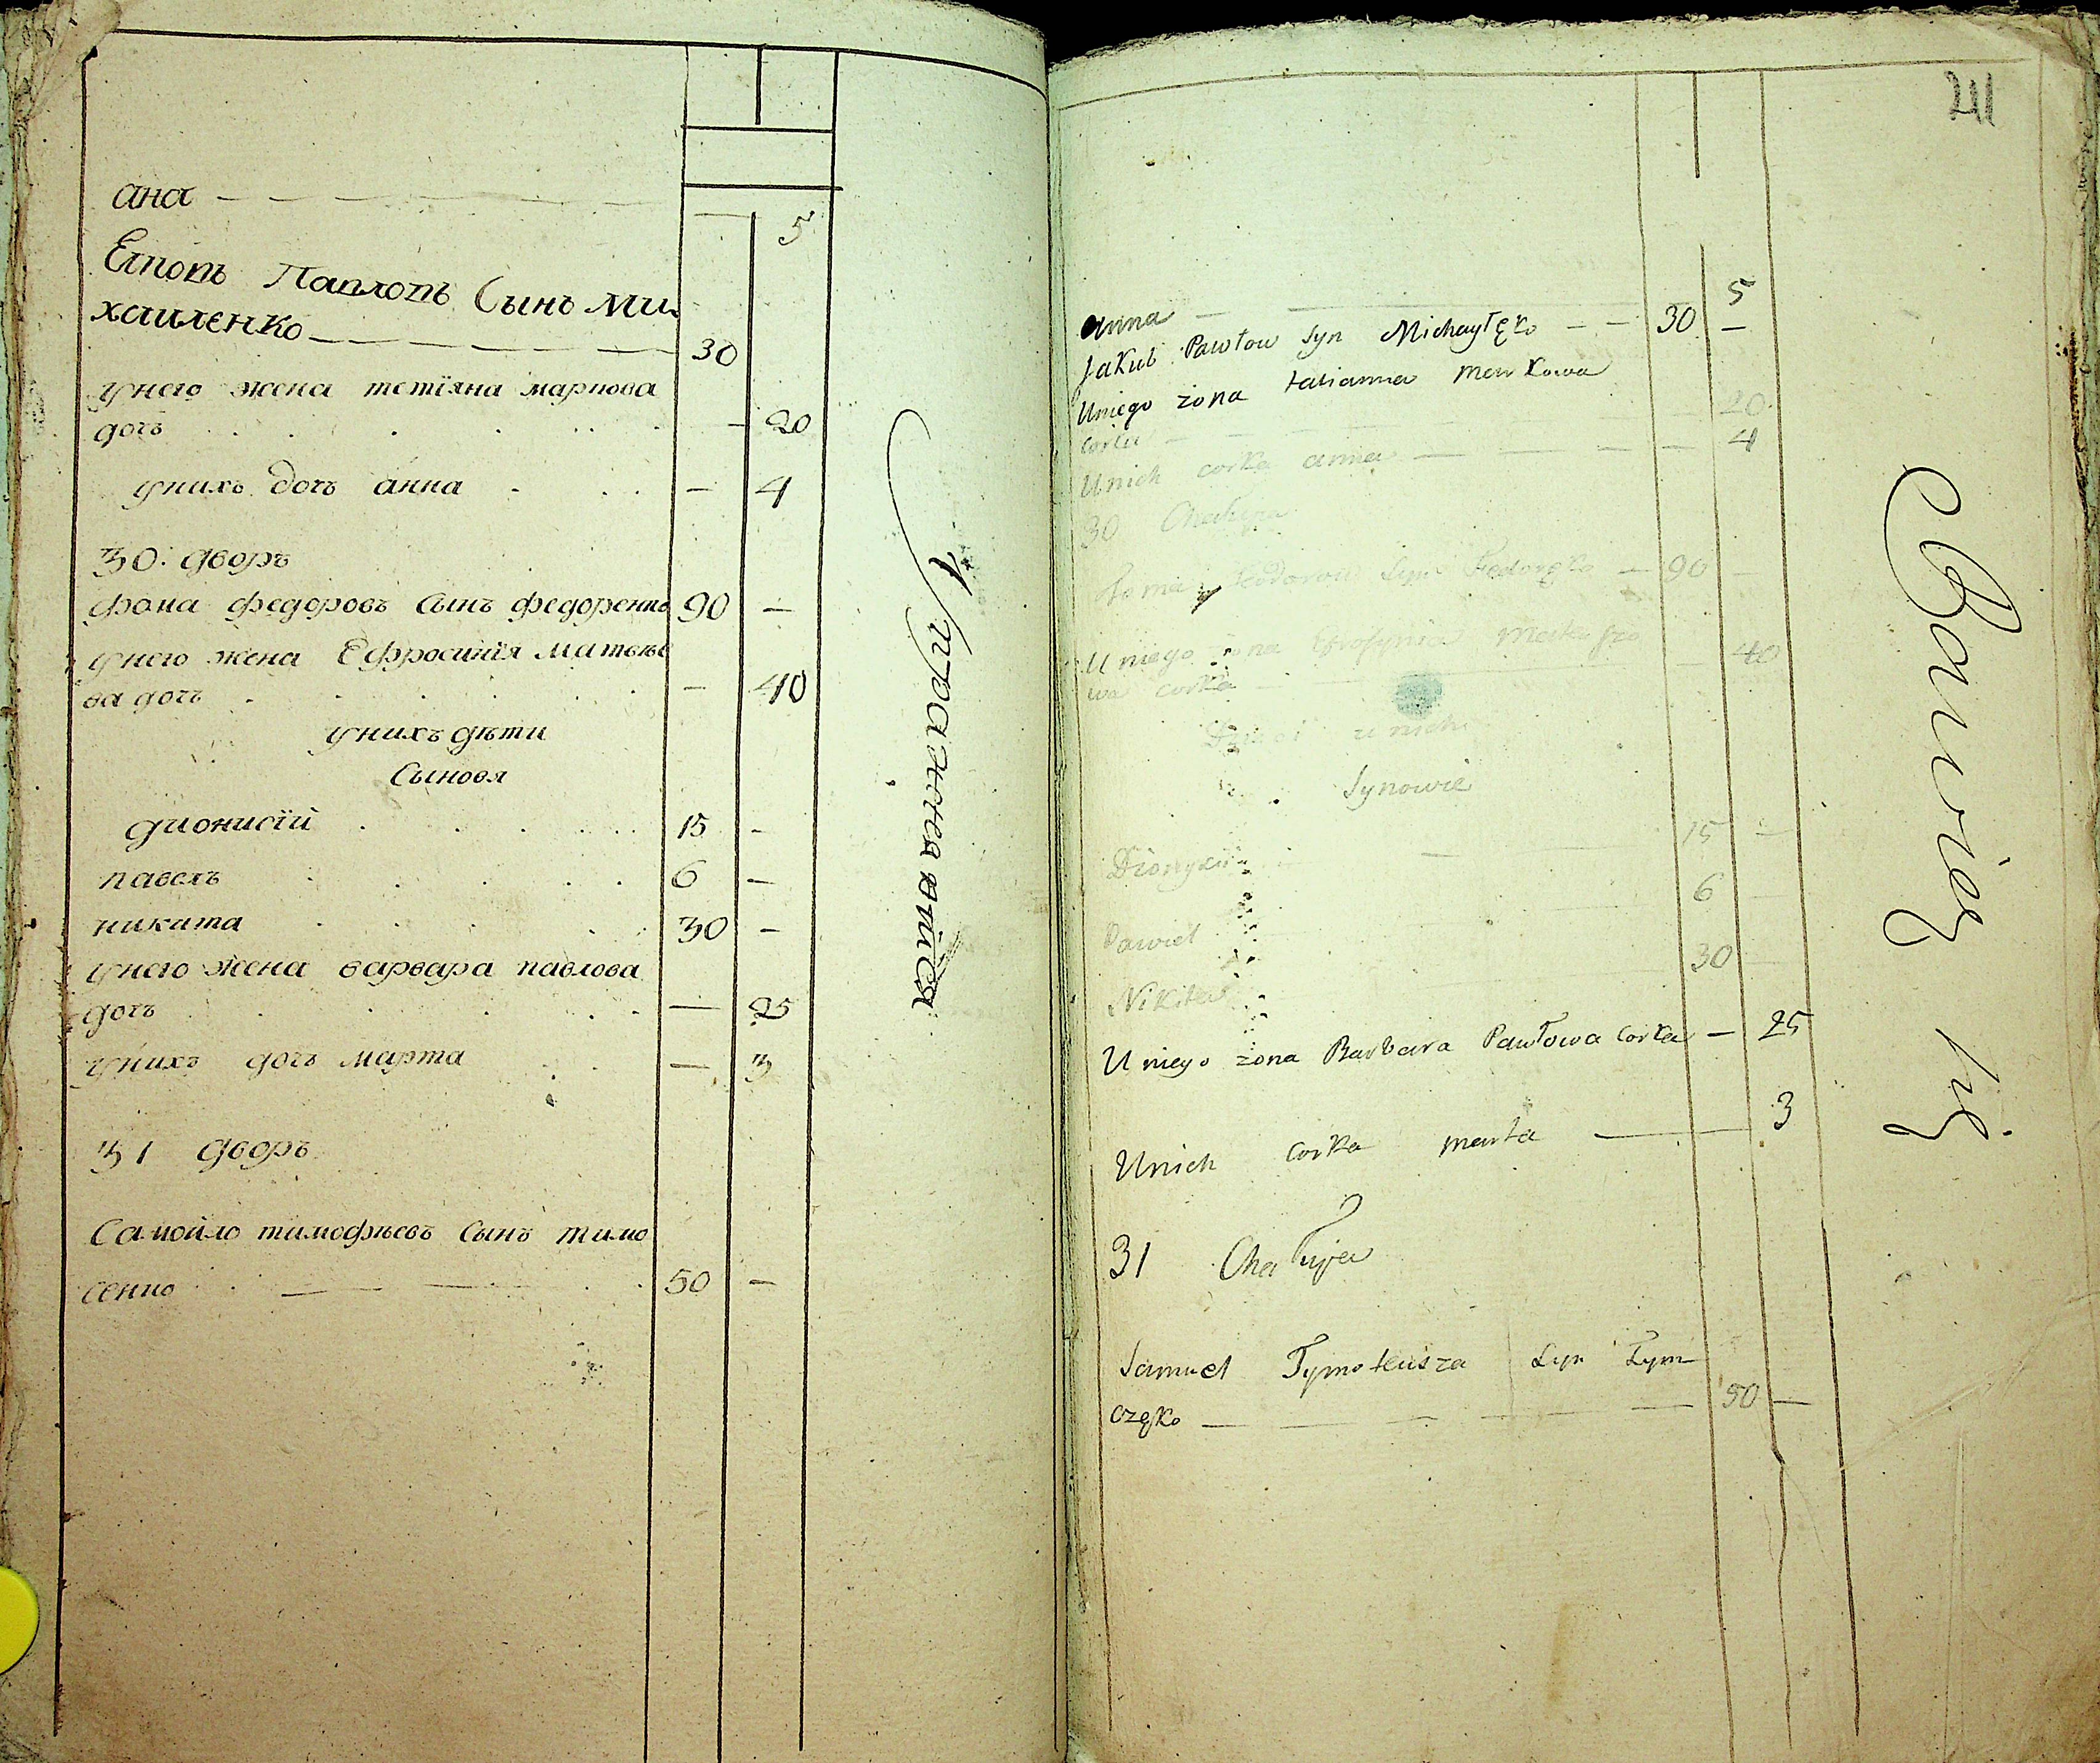 ана — 5
Епопъ Паплопъ Сынъ Ми
хаиленко — 30
унего жена тетіяна маркова
дочъ — 20
унихъ дочъ анна — 4
30: дворъ
фома федоровъ сынъ федоренко 90 —
унего жена Ефросинія матвѣе
ва дочъ — 40
унихъ дѣти
Сыновя
дионисїй 15 —
павелъ 6 —
никита 30 —
унего жена варвара павлова
дочъ — 25
унихъ дочъ марта — 3
31 дворъ
Самойло тимофѣевъ Сынъ тимо
сенко 50 —
Упражнявшійся
241
anna — 5
Jakub Pawłow Syn Michayłęko — 30 —
Uniego żona tatianna markowa
corka — 20
Unich corka anna — 4
30 Chałupa
Foma Fedorow Syn Fedoręko — 90 —
Uniego żona Efrosynia
wa corka — 40
Dzieci u nich
Synowie
Dionyzii 15 —
Pawieł 6
Nikita 30
Uniego żona Barbara Pawłowa corka — 25
Unich corka marta — 3
31 Chałupa
Samuel Tymoteusza Syn Tym
częko — 50 —
Bawięc się